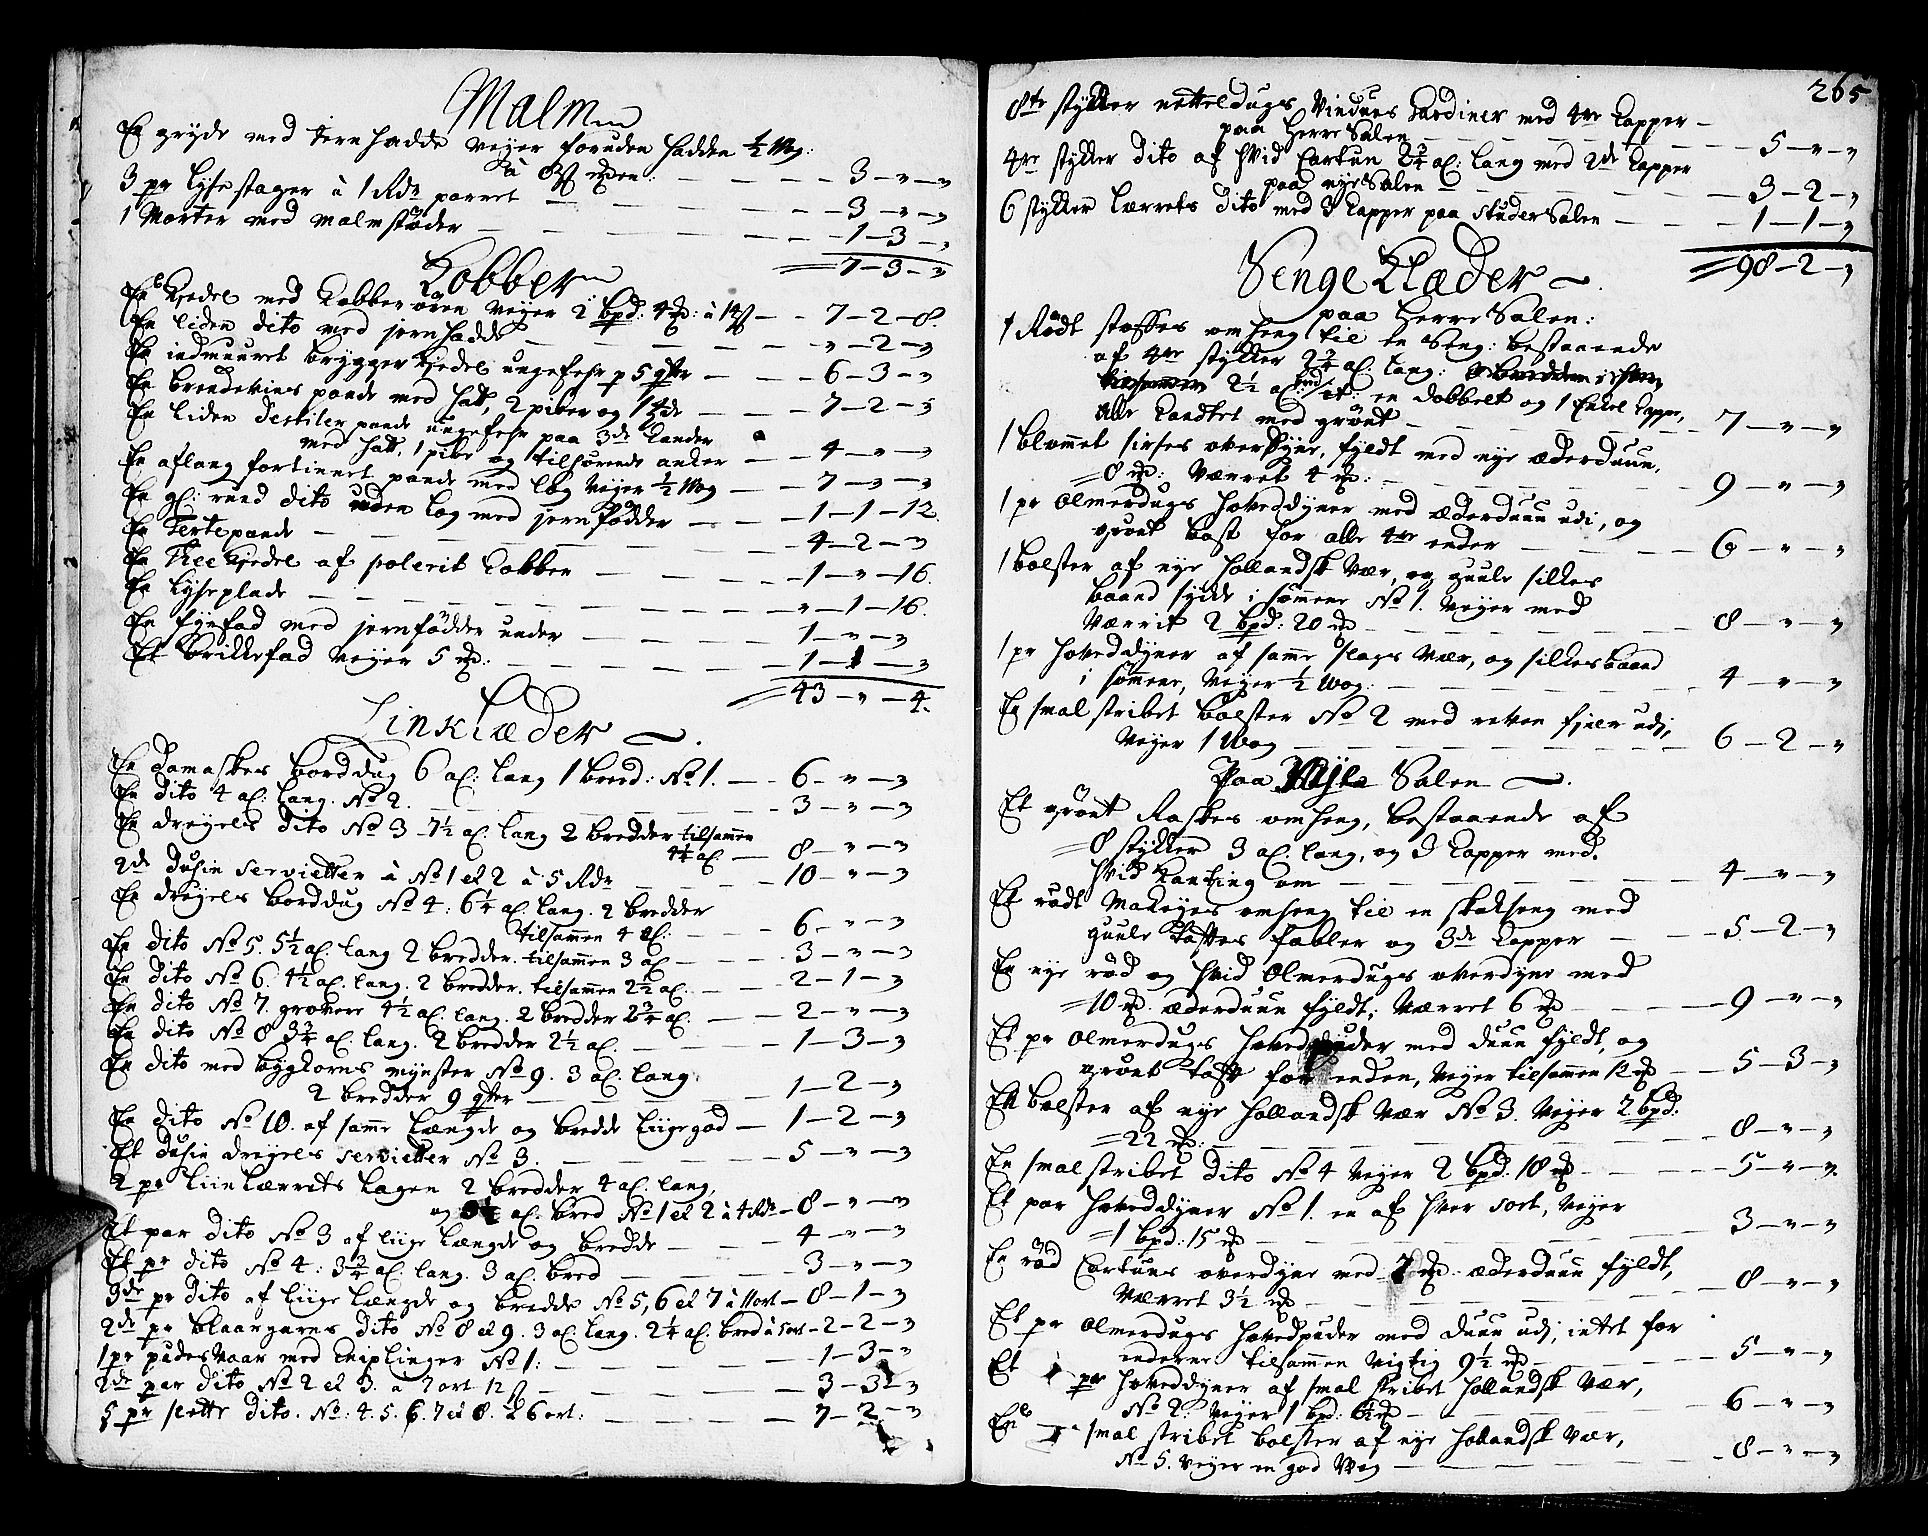 Malm
En gryde med jern hadde vejer foruden hadden ½ Wog:
à 8 β mden: — — 3 – „ – „
3 pr lyse stager à 1 Rdr parret — — 3 – „ – „
1 Morter med malm støder — — 1 – 3 – „
7 – 3 – „
Kobber
En Kedel med Kobber ören vejer 2 bpd: 4 md: à 14 β — 7 – 2 – 8.
En liden dito med jern hadde — „ – 2 – „
En indmuuret brygger Kjedel ungefehr p 5 qter — 6 – 3 – „
En brendevins pande med hatt, 2 piber og 1 — 7 – 2 – „
En liden destiler pande ungefehr paa 3de Kander
med hatt, 1 pibe og tilhørende anker — 4 – „ – „
En aflang fortinnet pande med log vejer ½ Wog — 7 – „ – „
En gl: rund dito uden log med jern fødder — 1 – 1 – 12.
En Tertepande — 4 – 2 – „
En Thee Kjedel af polerit Kobber — 1 – „ – 16.
En lyseplade — „ – 1 – 16.
En fyrfad med jernfødder under — 1 – „ – „
Et brikkefad vejer 5 md: — 1 – 1 – „
43 – „ – 4.
Linklæder
En Damaskes borddug 6 al: lang 1 bred: No 1. — 6 – „ – „
En dito 4 al: lang. No 2. — 3 – „ – „
En dreyels dito No 3 7½ al: lang 2 bredder tilsammen
4¼ al. — 8 – „ – „
2de dusin Servietter à No 1 et 2 à 5 Rdr — 10 – „ – „
En dreyels borddug No 4: 6¼ al. lang. 2 bredder
tilsammen 4 al: — 6 – „ – „
En dito No 5. 5½ al. lang 2 bredder. tilsammen 3 al — 3 – „ – „
En dito No 6. 4½ al. lang. 2 bredder. tilsammen 2½ al. — 2 – 1 – „
En dito No 7. grovere 4½ al. lang. 2 bredder 2¾ al. — 2 – „ – „
En dito No 8 3¾ al. lang. 2 bredder 2½ al. — 1 – 3 – „
En dito med bygkorns mynster No 9. 3 al. lang.
2 bredder 9 qter — 1 – 2 – „
En dito No 10. af samme længde og bredde liige god — 1 – 2 – „
Et dusin dreyels servietter No 3. — 5 – „ – „
2 pr liin lærrets lagen 2 bredder 4 al. lang,
og al. bred No 1 et 2 à 4 Rdr — 8 – „ – „
Et par dito No 3 af liige længde og bredde — 4 – „ – „
Et pr dito No 4: 3¾ al. lang. 3 al. bred — 3 – „ – „
3de pr dito af liige længde og bredde No 5, 6 et 7 à 11 ort — 8 – 1 – „
2de pr blaangarns dito No 8 et 9. 3 al. lang. 2¼ al. bred à 5 ort — 2 – 2 – „
1 pr pudes vaar med Kniplinger No 1: — 1 – 3 – „
2de par dito No 2 et 3. à 7 ort 12 β — 3 – 3 – „
5 pr slette dito. No: 4. 5. 6. 7 et 8. à 6 ort: — 7 – 2 – „
265
8te stykker netteldugs Vindues Gardiner med 4re Kapper —
paa Herre Salen — 5 – „ – „
4re stykker dito af hvid Cartun 2¼ al: lang med 2de Kapper
paa nye Salen — 3 – 2 – „
6 stykker lærrets dito med 3 Kapper paa Studer Salen — 1 – 1 – „
98 – 2 – „
Senge Klæder
paa Herre Salen:
1 Rødt stoffes omheng til en Seng: bestaaende
af 4re stykker 2¾ al. lang:
2½ al: en dobbelt og 1 Enkel Kappe,
alle Kandtet med grønt — 7 – „ – „
1 blommet sirses overdyne, fyldt med nye æderduun,
8 md: Værret 4 md: — 9 – „ – „
1 pr Olmerdugs hoveddyner med æderduun udi, og
grønt bast for alle 4re ender — 6 – „ – „
1 bolster af nye Hollandsk Vær, og guule silkes
baand sydde i sømmene No 1. vejer med
Værrit 2 bpd: 20 md — 8 – „ – „
1 pr hoveddyner af samme slags Vær, og silkes baand
i sømmene, vejer ½ Wog. — 4 – „ – „
En smal stribet bolster No 2 med reven fjær udj,
vejer 1 Wog — 6 – 2 – „
Paa Nye Salen
Et grönt Raskes omheng, bestaaende af
8 stykker 3 al. lang, og 3 Kapper med.
hvid Kanting om — 4 – „ – „
Et rødt Makeyes omheng til en skabseng med
guule tafftes fabler og 3de Kapper — 5 – 2 – „
En nye rød og hvid Olmerdugs overdyne med
10 md. æderduun fyldt; Værret 6 md — 9 – „ – „
Et pr Olmerdugs hovedpuder med duun fyldt, og
grønt taft for enden, vejer tilsammen 12 md — 5 – 3 – „
En bolster af nye Hollandsk Vær No 3. vejer 2 bpd:
22 md: — 8 – „ – „
En smal stribet dito No 4 vejer 2 bpd: 18 md — 5 – „ – „
Et par hoveddyner No 1. en af hver sort, vejer
1 bpd: 15 md — 3 – „ – „
En rød Cartuns overdyne med 7 md. æderduun fyldt,
Værret 3½ md — 8 – „ – „
Et pr Olmerdugs hovedpuder med duun udi, intet for
enderne tilsammen vigtig 9½ md — 5 – „ – „
Et pr hoveddyner af smal stribet Hollandsk Vær,
No 2: vejer 1 bpd: 6½ md — 6 – „ – „
En smal stribet bolster af nye Hollandsk Vær,
No 5. vejer en god Wog — 8 – „ – „